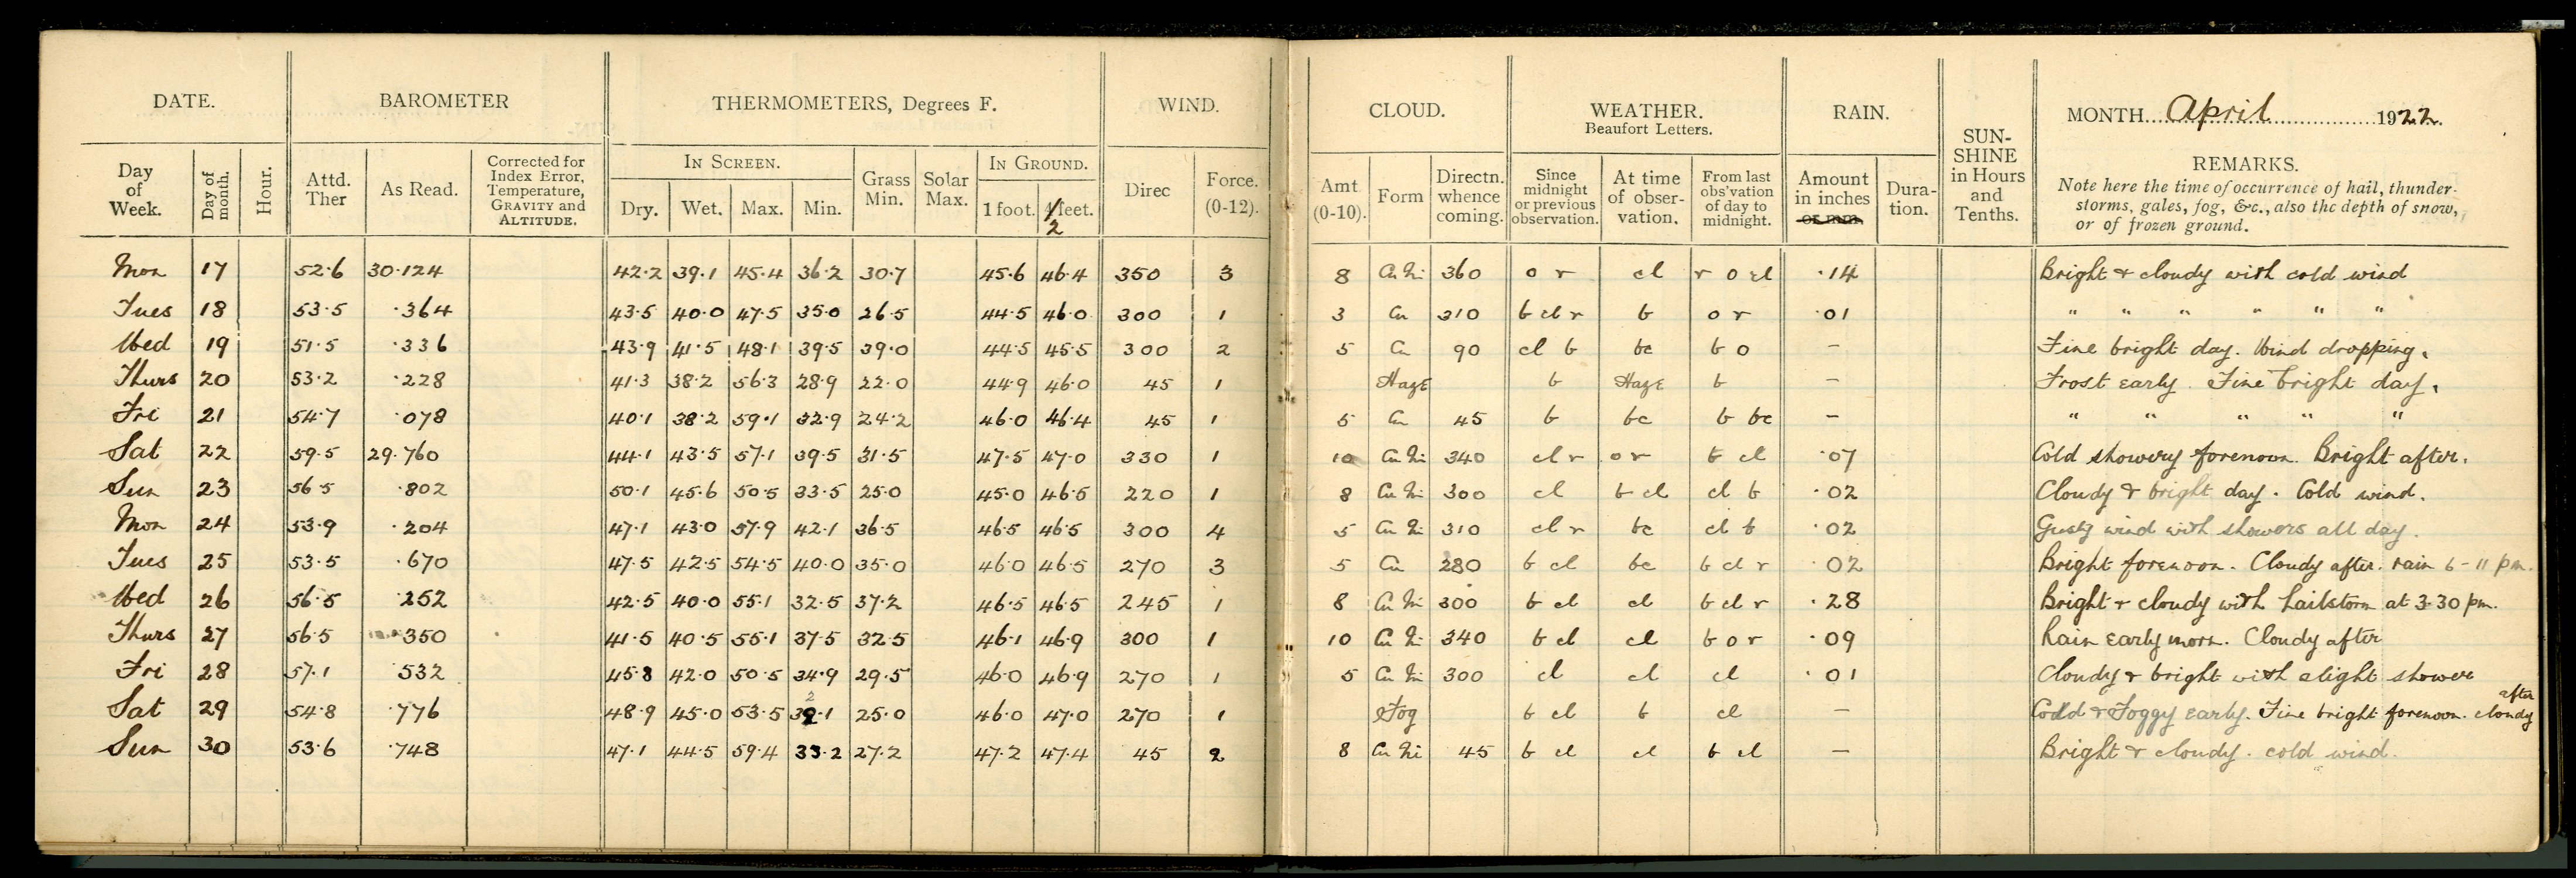 DATE. BAROMETER THERMOMETERS, Degrees F. WIND. CLOUD. WEATHER. Beaufort Letters. RAIN. SUN-SHINE in Hours and Tenths. MONTH April 1922.
Day of Week. Day of month. Hour. Attd. Ther As Read. Corrected for Index Error, Temperature, GRAVITY and ALTITUDE. IN SCREEN. Dry. Wet. Max. Min. Grass Min. Solar Max. IN GROUND. 1 foot. 2 feet. Direc Force. (0-12). Amt (0-10). Form Directn. whence coming. Since midnight or previous observation. At time of obser-vation. From last obs'vation of day to midnight. Amount in inches or mm. Dura-tion. REMARKS.
Note here the time of occurrence of hail, thunder-
storms, gales, fog, &c., also the depth of snow,
or of frozen ground.
Mon 17 52.6 30.124 42.2 39.1 45.4 36.2 30.7 45.6 46.4 350 3 8 Cu Ni 360 o r cl r o cl .14 Bright & cloudy with cold wind
Tues 18 53.5 .364 43.5 40.0 47.5 35.0 26.5 44.5 46.0 300 1 3 Cu 310 b cl r b o r .01 " " " " " "
Wed 19 51.5 .336 43.9 41.5 48.1 39.5 39.0 44.5 45.5 300 2 5 Cu 90 cl b bc b o – Fine bright day. Wind dropping.
Thurs 20 53.2 .228 41.3 38.2 56.3 28.9 22.0 44.9 46.0 45 1 Haze b Haze b – Frost early. Fine bright day.
Fri 21 54.7 .078 40.1 38.2 59.1 32.9 24.2 46.0 46.4 45 1 5 Cu 45 b bc b bc – " " " " "
Sat 22 59.5 29.760 44.1 43.5 57.1 39.5 31.5 47.5 47.0 330 1 10 Cu Ni 340 cl r o r b cl .07 Cold showery forenoon. Bright after.
Sun 23 56.5 .802 50.1 45.6 50.5 33.5 25.0 45.0 46.5 220 1 8 Cu Ni 300 cl b cl cl b .02 Cloudy & bright day. Cold wind.
Mon 24 53.9 .204 47.1 43.0 57.9 42.1 36.5 46.5 46.5 300 4 5 Cu Ni 310 cl r bc cl b .02 Gusty wind with showers all day.
Tues 25 53.5 .670 47.5 42.5 54.5 40.0 35.0 46.0 46.5 270 3 5 Cu 280 b cl bc b cl r .02 Bright forenoon. Cloudy after. rain 6-11 pm.
Wed 26 56.5 .252 42.5 40.0 55.1 32.5 37.2 46.5 46.5 245 1 8 Cu Ni 300 b cl cl b cl r .28 Bright & cloudy with hailstorm at 3.30 pm.
Thurs 27 56.5 350 41.5 40.5 55.1 37.5 32.5 46.1 46.9 300 1 10 Cu Ni 340 b cl cl b o r .09 Rain early morn. Cloudy after
Fri 28 57.1 532 45.8 42.0 50.5 34.9 29.5 46.0 46.9 270 1 5 Cu Ni 300 cl cl cl .01 Cloudy & bright with slight shower
Sat 29 54.8 .776 48.9 45.0 53.5 32.1 25.0 46.0 47.0 270 1 Fog b cl b cl – Cold & Foggy early. Fine bright forenoon. cloudy after
Sun 30 53.6 .748 47.1 44.5 59.4 33.2 27.2 47.2 47.4 45 2 8 Cu Ni 45 b cl cl b cl – Bright & cloudy. cold wind.